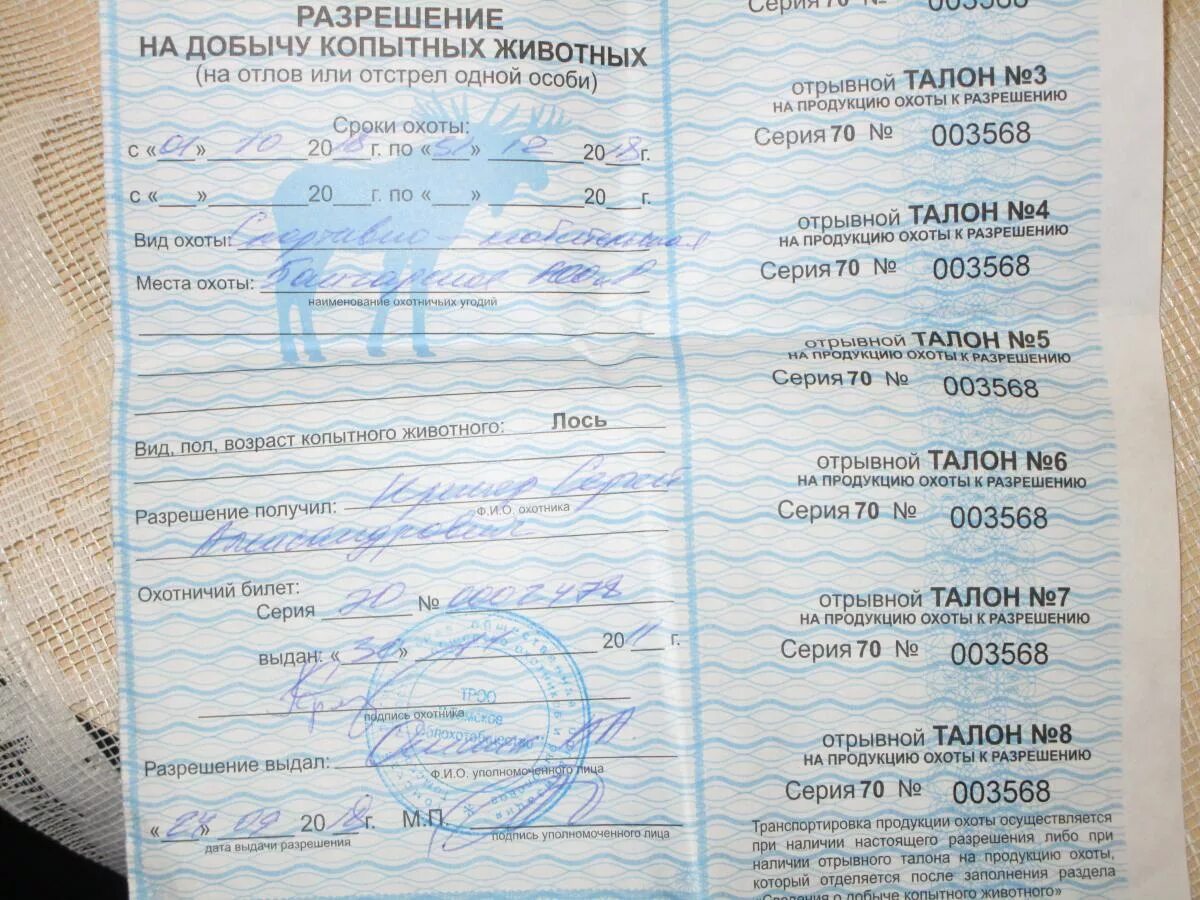 РАЗРЕШЕНИЕ
НА ДОБЫЧУ КОПЫТНЫХ ЖИВОТНЫХ
(на отлов или отстрел одной особи)
Сроки охоты:
с «01» 10 2018 г. по «31» 12 2018 г.
с «___» ________ 20___ г. по «___» ________ 20___ г.
Вид охоты: Спортивно любительская
Места охоты:
наименование охотничьих угодий
Вид, пол, возраст копытного животного: Лось
Разрешение получил: Сергей
Ф.И.О. охотника
Александрович
Охотничий билет:
Серия 70 № 0002478
выдан: «30» 2011 г.
подпись охотника
Разрешение выдал:
Ф.И.О. уполномоченного лица
«24» 09 2018 г. М.П.
дата выдачи разрешения
подпись уполномоченного лица
ТРОО
Томское
Серия 70 № 003568
отрывной ТАЛОН №3
НА ПРОДУКЦИЮ ОХОТЫ К РАЗРЕШЕНИЮ
Серия 70 № 003568
отрывной ТАЛОН №4
НА ПРОДУКЦИЮ ОХОТЫ К РАЗРЕШЕНИЮ
Серия 70 № 003568
отрывной ТАЛОН №5
НА ПРОДУКЦИЮ ОХОТЫ К РАЗРЕШЕНИЮ
Серия 70 № 003568
отрывной ТАЛОН №6
НА ПРОДУКЦИЮ ОХОТЫ К РАЗРЕШЕНИЮ
Серия 70 № 003568
отрывной ТАЛОН №7
НА ПРОДУКЦИЮ ОХОТЫ К РАЗРЕШЕНИЮ
Серия 70 № 003568
отрывной ТАЛОН №8
НА ПРОДУКЦИЮ ОХОТЫ К РАЗРЕШЕНИЮ
Серия 70 № 003568
Транспортировка продукции охоты осуществляется
при наличии настоящего разрешения либо при
наличии отрывного талона на продукцию охоты,
который отделяется после заполнения раздела
«Сведения о добыче копытного животного»